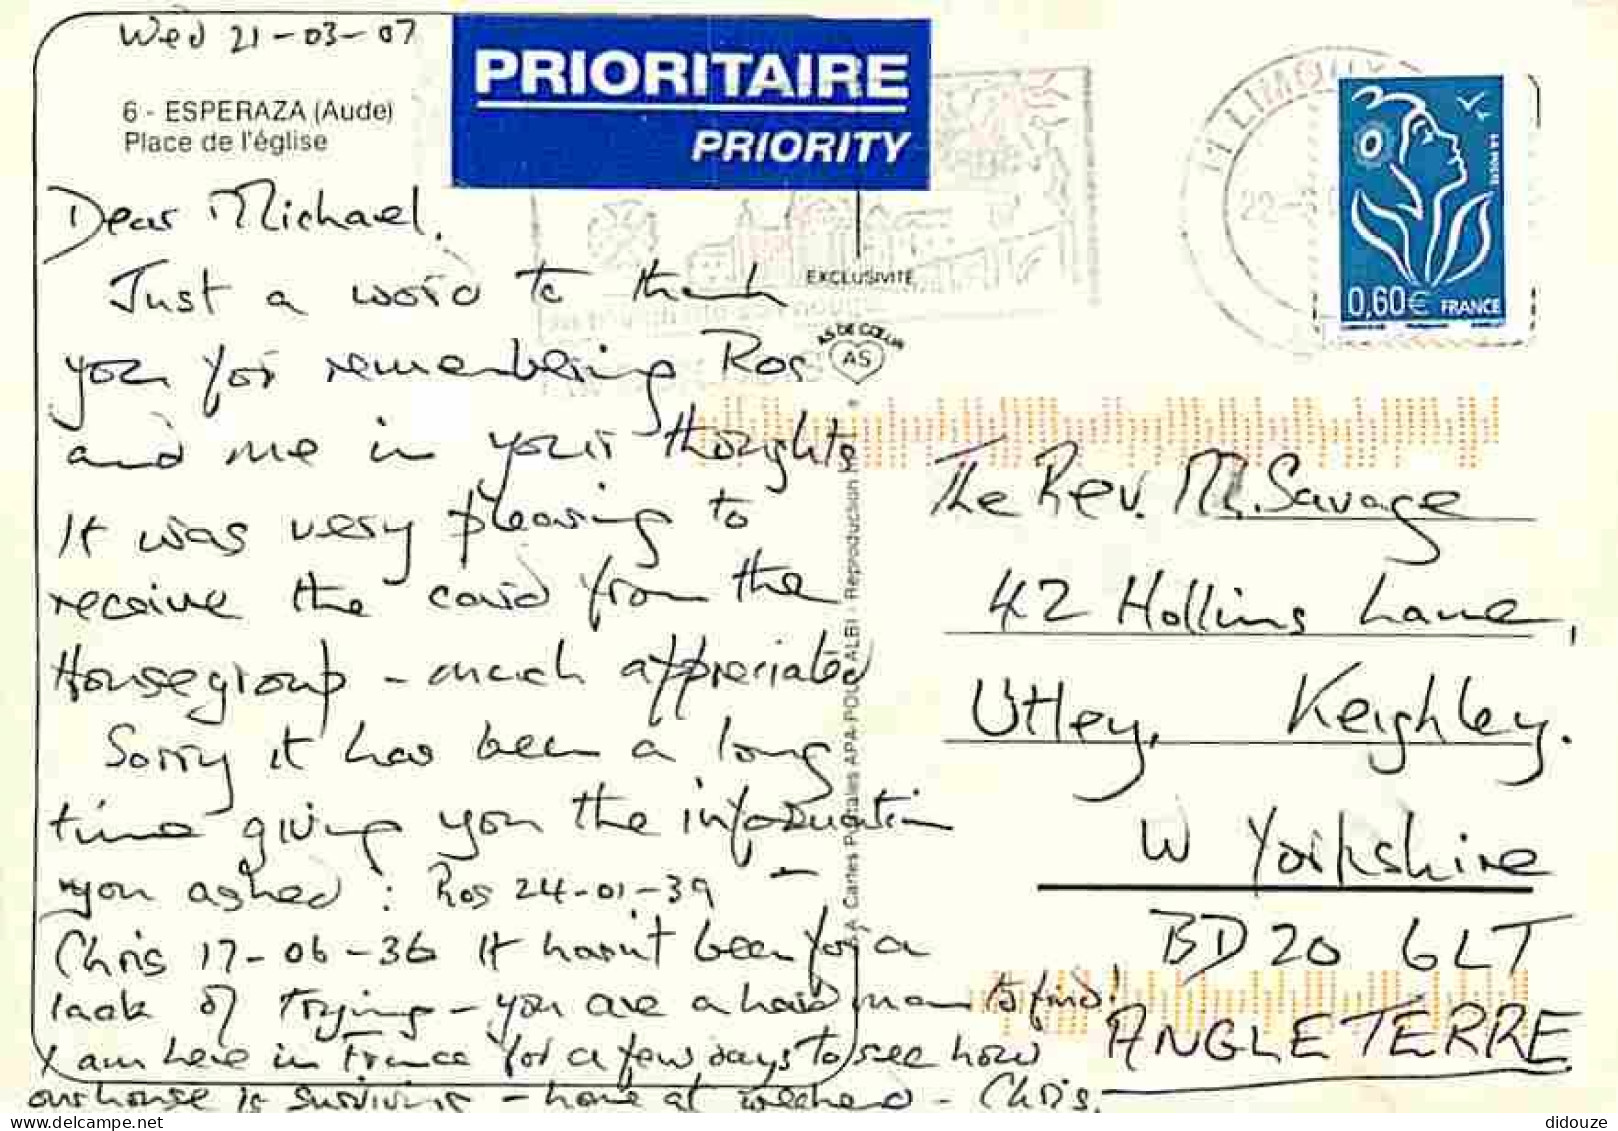 Wed 21-03-07
6 - ESPERAZA (Aude)
Place de l'église
PRIORITAIRE
PRIORITY
0,60€ FRANCE
EXCLUSIVITÉ
AS DE CŒUR
AS
Dear Michael.
Just a word to thank
you for remembering Ros
and me in your thoughts
It was very pleasing to
receive the card from the
Housegroup - much appreciated
Sorry it has been a long
time giving you the information
you asked : Ros 24-01-39 -
Chris 17-06-36 It hasn't been for a
lack of trying - you are a hard man to find!
I am here in France for a few days to see how
our house is surviving - home at weekend - Chris.
Cartes Postales APA-POUX ALBI - Reproduction
The Rev. M. Savage
42 Hollins Lane,
Utley, Keighley.
W Yorkshire
BD20 6LT
ANGLETERRE
delcampe.net
didouze